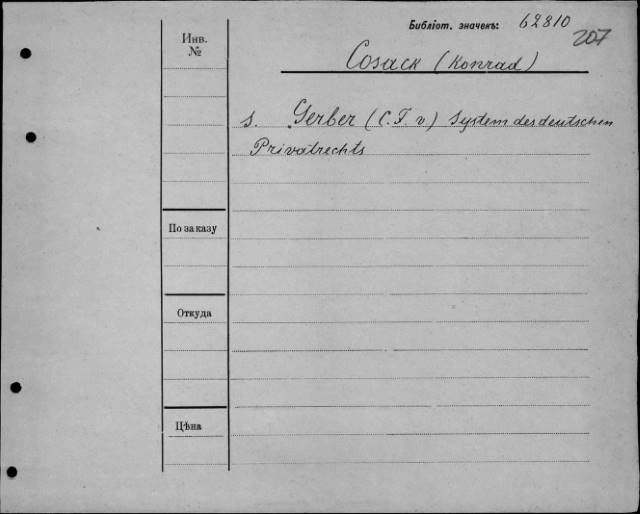 Библіот. значекъ: 62810
207
Инв.
№
Cosack (Konrad)
s. Gerber (C. F. v.) System des deutschen
Privatrechts
По заказу
Откуда
Цѣна